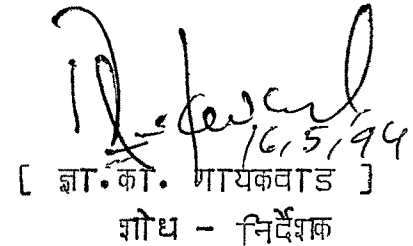 16,5,94
[ ज्ञा.का. गायकवाड ]
शोध - निर्देशक